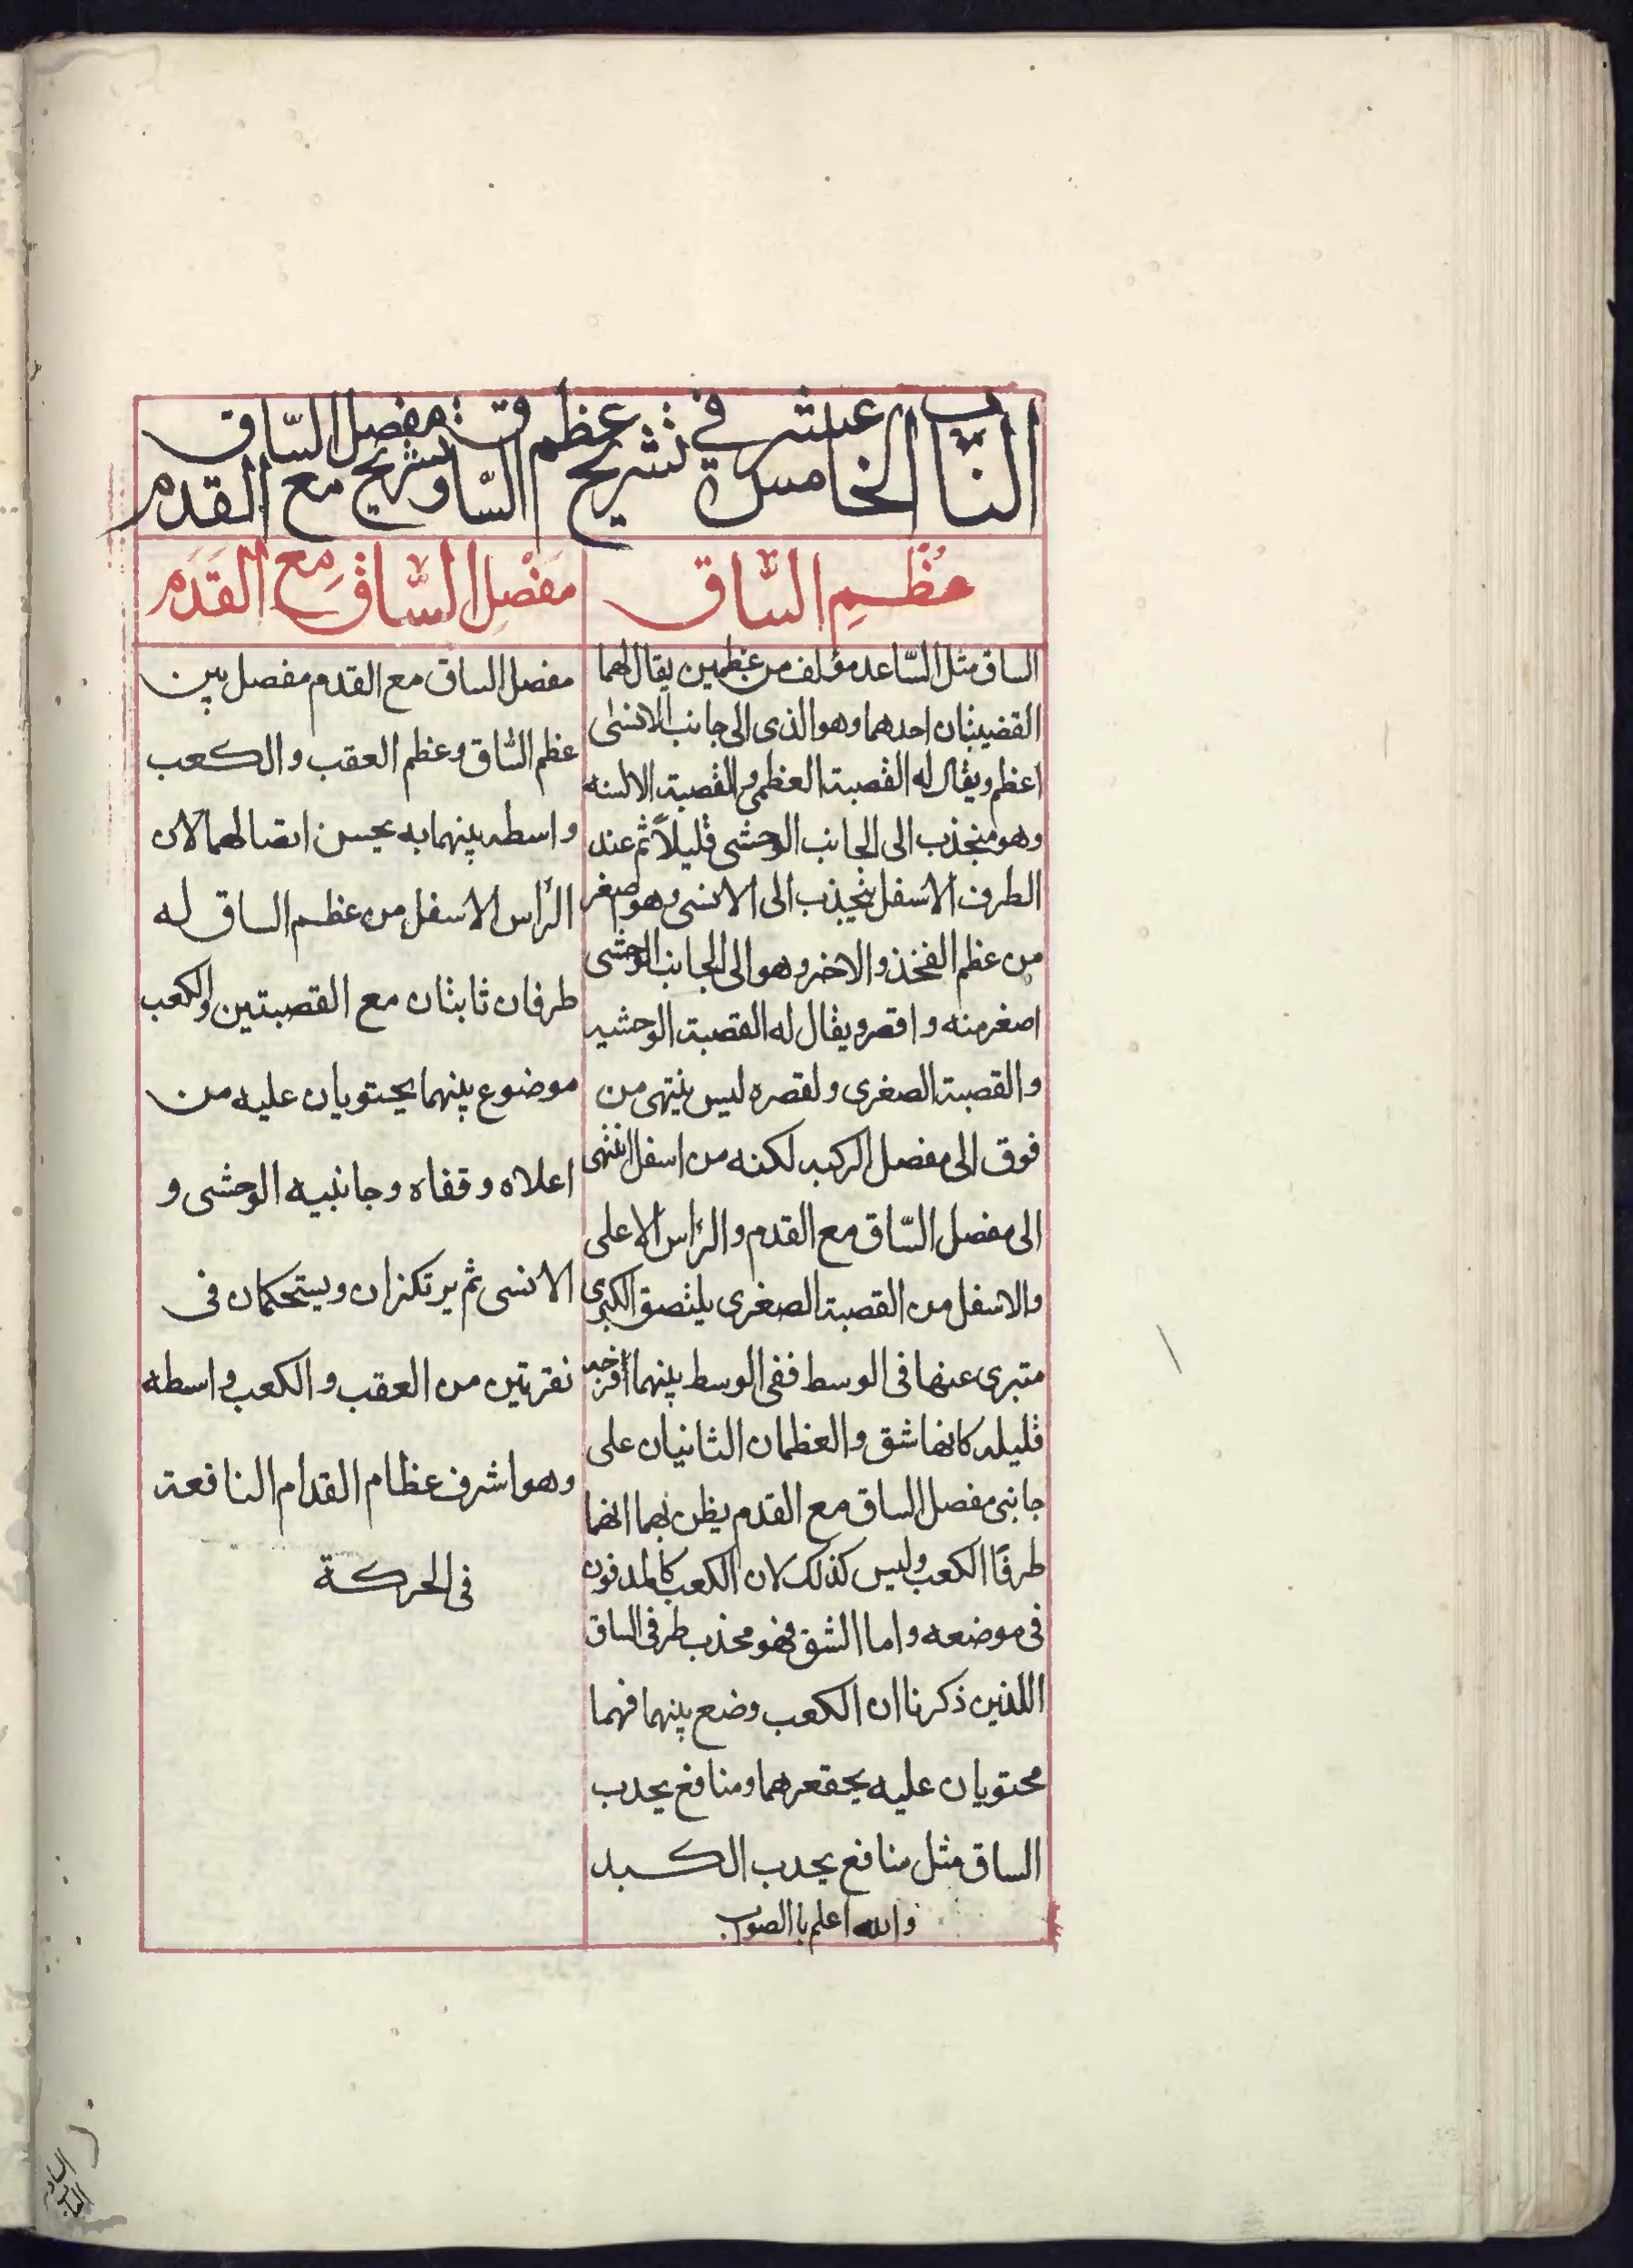 الباب الخامس عشر في تشريح عظم الساق وتشريح مفصل الساق مع القدم
عظم السّاق
الساق مثل السّاعد مؤلف من عظمين يقال لهما
القضيبتان احدهما وهو الذى الى جانب الانسى
اعظم ويقال له القصبة العظمى والقصبة الانسه
وهو منجذب الى الجانب الوحشى قليلاً ثم عند
الطرف الاسفل ينجذب الى الانسى وهو اصغر
من عظم الفخذ والاخر وهو الى الجانب الوحشى
اصغر منه واقصر ويقال له القصبة الوحشيه
والقصبة الصغرى ولقصره ليس ينتهى من
فوق الى مفصل الركبه لكنه من اسفل انتهى
الى مفصل السّاق مع القدم والرّاس الاعلى
والاسفل من القصبة الصغرى يلتصق الكبرى
متبرى عنها فى الوسط ففى الوسط بينهما فرجه
قليله كانها شق والعظمان الثانيان على
جانبى مفصل الساق مع القدم يظن بهما انهما
طرفا الكعب وليس كذلك لان الكعب كالمدفون
فى موضعه واما الشق فهو محذب طرفى الساق
اللذين ذكرنا ان الكعب وضع بينهما فهما
محتويان عليه بحقعرهما ومنافع يحدب
الساق مثل منافع يحدب الكبد
والله اعلم باالصواب
مَفْصِل السّاق مع القَدَم
مفصل الساق مع القدم مفصل بين
عظم السّاق وعظم العقب والكعب
واسطه بينهما به يحسن اتصالهما لان
الرّاس الاسفل من عظم الساق له
طرفان ثابتان مع القصبتين والكعب
موضوع بينهما يحتويان عليه من
اعلاه وقفاه وجانبيه الوحشى و
الانسى ثم يرتكزان ويستحكمان فى
نقرتين من العقب والكعب واسطه
وهو اشرف عظام القدام النافعة
فى الحركة